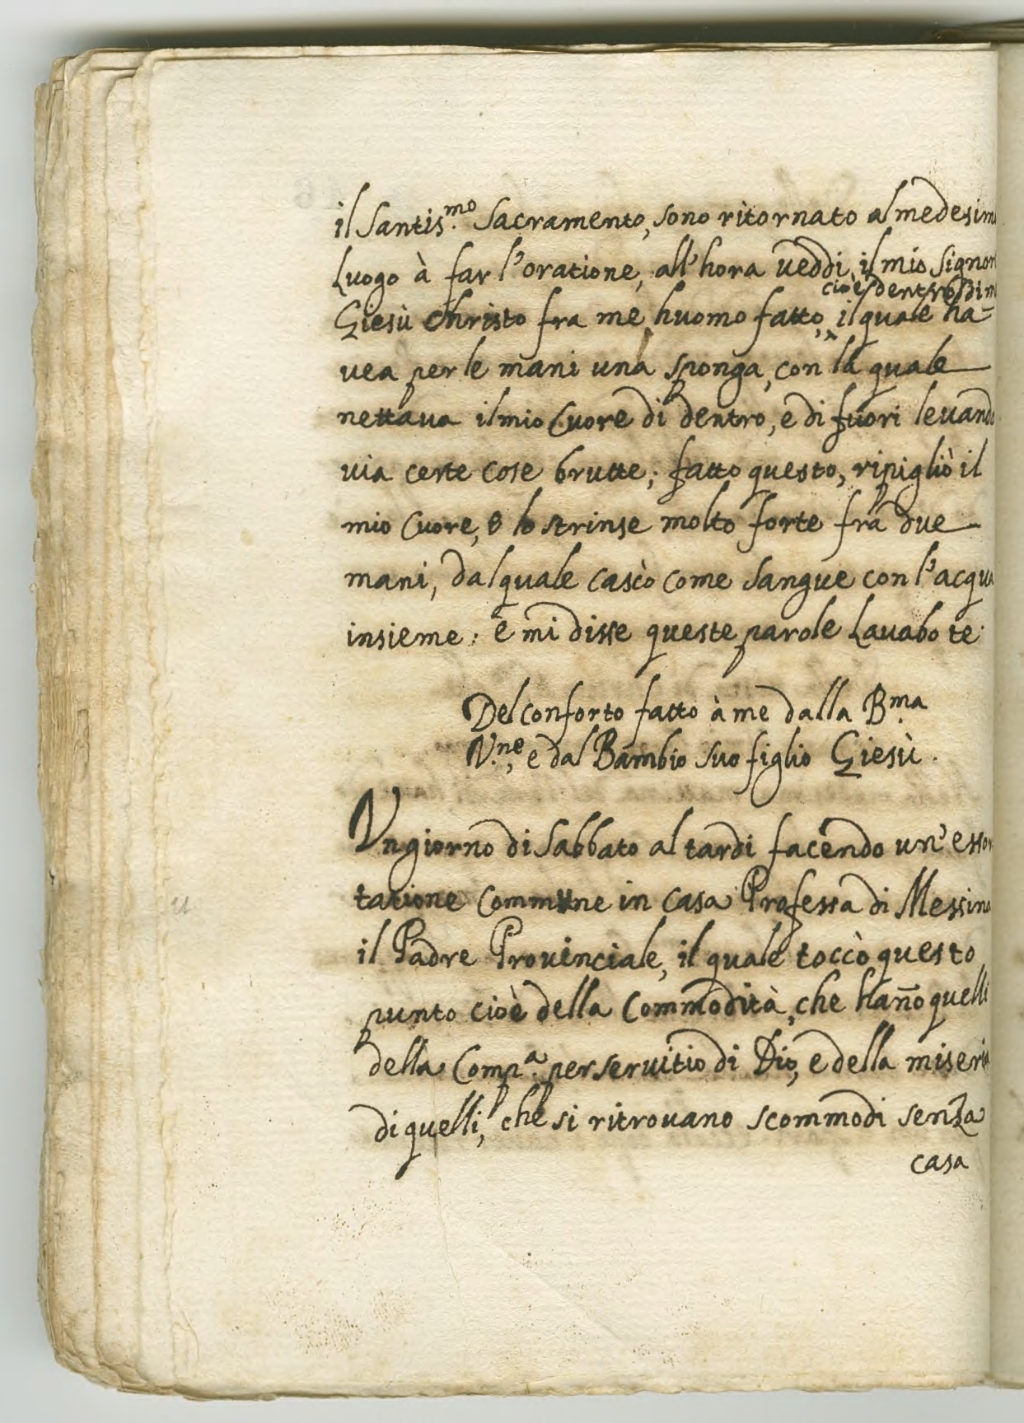 il Santis.mo Sacramento, sono ritornato al medesim
Luogo à far l'oratione, all'hora veddi, il mio Signor
cioè dentro di m
Giesù Christo fra me, huomo fatto, il quale ha=
vea per le mani una sponga, con la quale
nettava il mio Cuore di dentro, e di fuori levand
via certe cose brutte; fatto questo, ripigliò il
mio Cuore, e lo strinse molto forte fra due
mani, dal quale cascò come sangue con l'acqu
insieme: e mi disse queste parole Lavabo te:
Del conforto fatto à me dalla B.ma
V.ne, e dal Bambio suo figlio Giesù.
Un giorno di Sabbato al tardi facendo un'essor
tatione Commune in casa Professa di Messin
il Padre Provinciale, il quale toccò questo
punto cioè della Commodità, che hañno quelli
della Comp.a per servitio di Dio, e della miseri
di quelli, che si ritrovano scommodi senza
casa